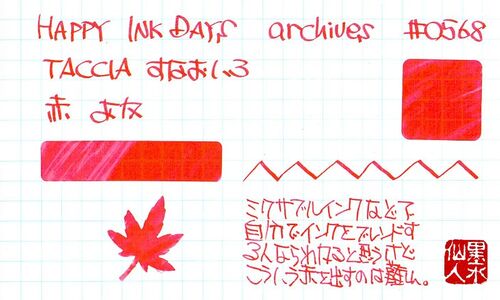 HAPPY INK DAYS archives #0568
TACCIA すなおいろ
赤 あか
ミクサブルインクなどで
自力でインクをブレンドす
る人ならわかると思うけど
こういう赤を出すのは難しい。
墨水仙人